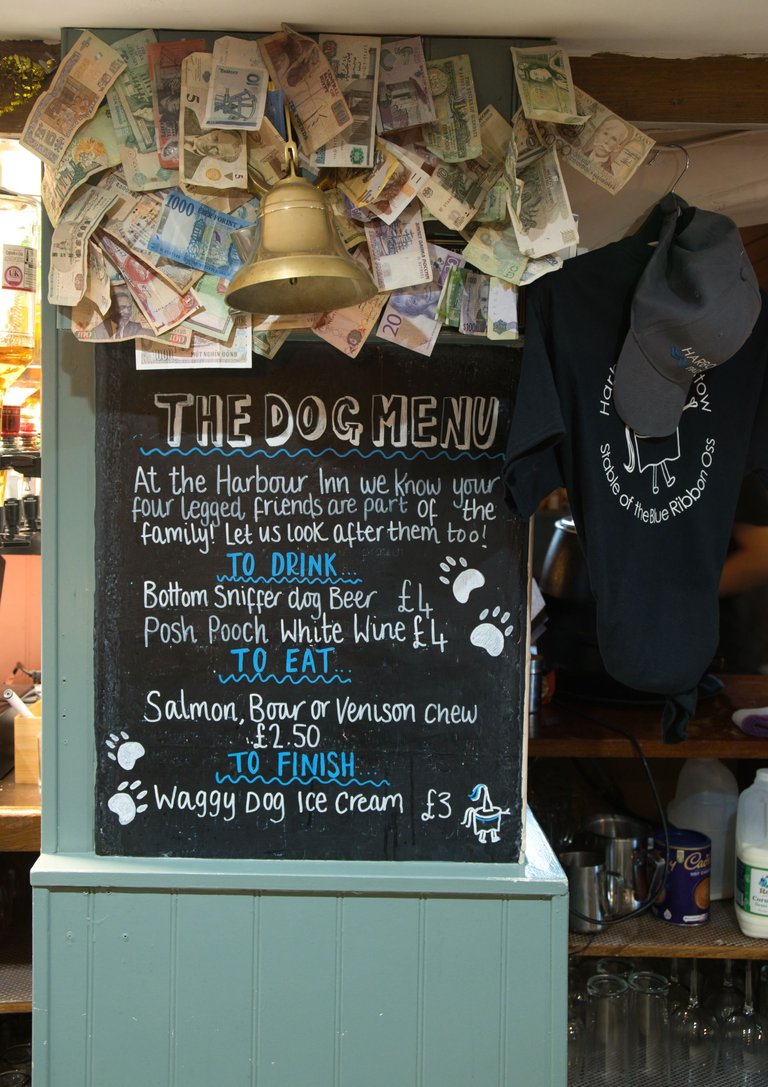 5
10
5
1000
20
$100
THE DOG MENU
At the Harbour Inn we know your
four legged friends are part of the
family! Let us look after them too!
TO DRINK...
Bottom Sniffer dog Beer £4
Posh Pooch White Wine £4
TO EAT...
Salmon, Boar or Venison chew
£2.50
TO FINISH
Waggy Dog Ice Cream £3
HARBOUR
Stable of the Blue Ribbon Oss